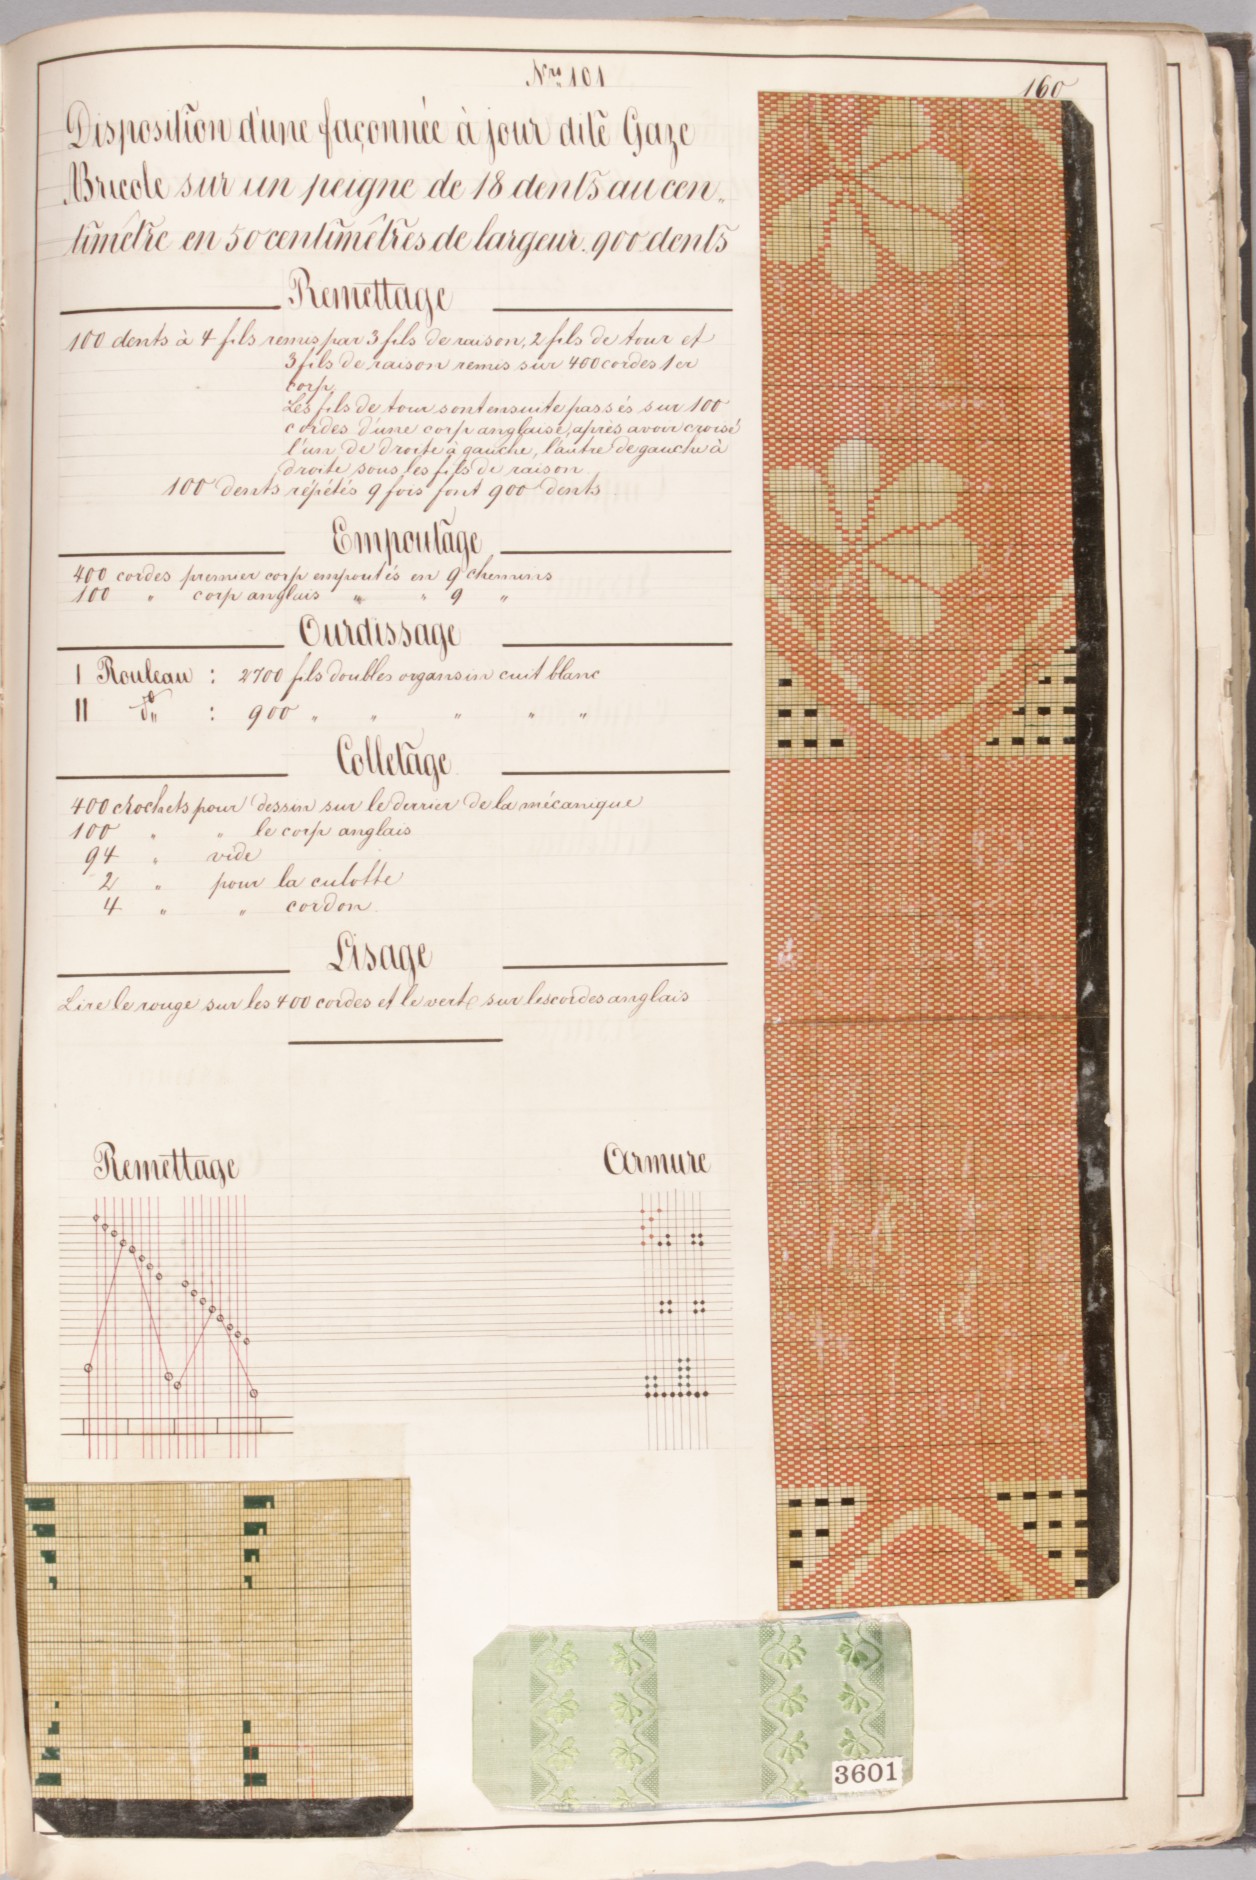 Nro 101
160
Disposition d'une façonnée à jour dite Gaze
Bricole sur un peigne de 18 dents au cen„
timêtre en 50 centimêtres de largeur. 900 dents
Remettage
100 dents à 4 fils remis par 3 fils de raison, 2 fils de tour et
3 fils de raison remis sur 400 cordes 1er
corp.
Les fils de tour sont ensuite passés sur 100
cordes d'une corp anglaise, après avoir croisé
l'un de droite à gauche, l'autre de gauche à
droite sous les fils de raison
100 dents répétés 9 fois font 900 dents
Empoutage
400 cordes premier corp empoutés en 9 chemins
100 " corp anglais " " 9 "
Ourdissage
I Rouleau : 2700 fils doubles organsin cuit blanc
II do„ : 900 " " " " "
Colletage
400 crochets pour dessin sur le derrier de la mécanique
100 " " le corp anglais
94 " vide
2 " pour la culotte
4 " " cordon
Lisage
Lire le rouge sur les 400 cordes et le vert sur les cordes anglais
Remettage
Armure
3601